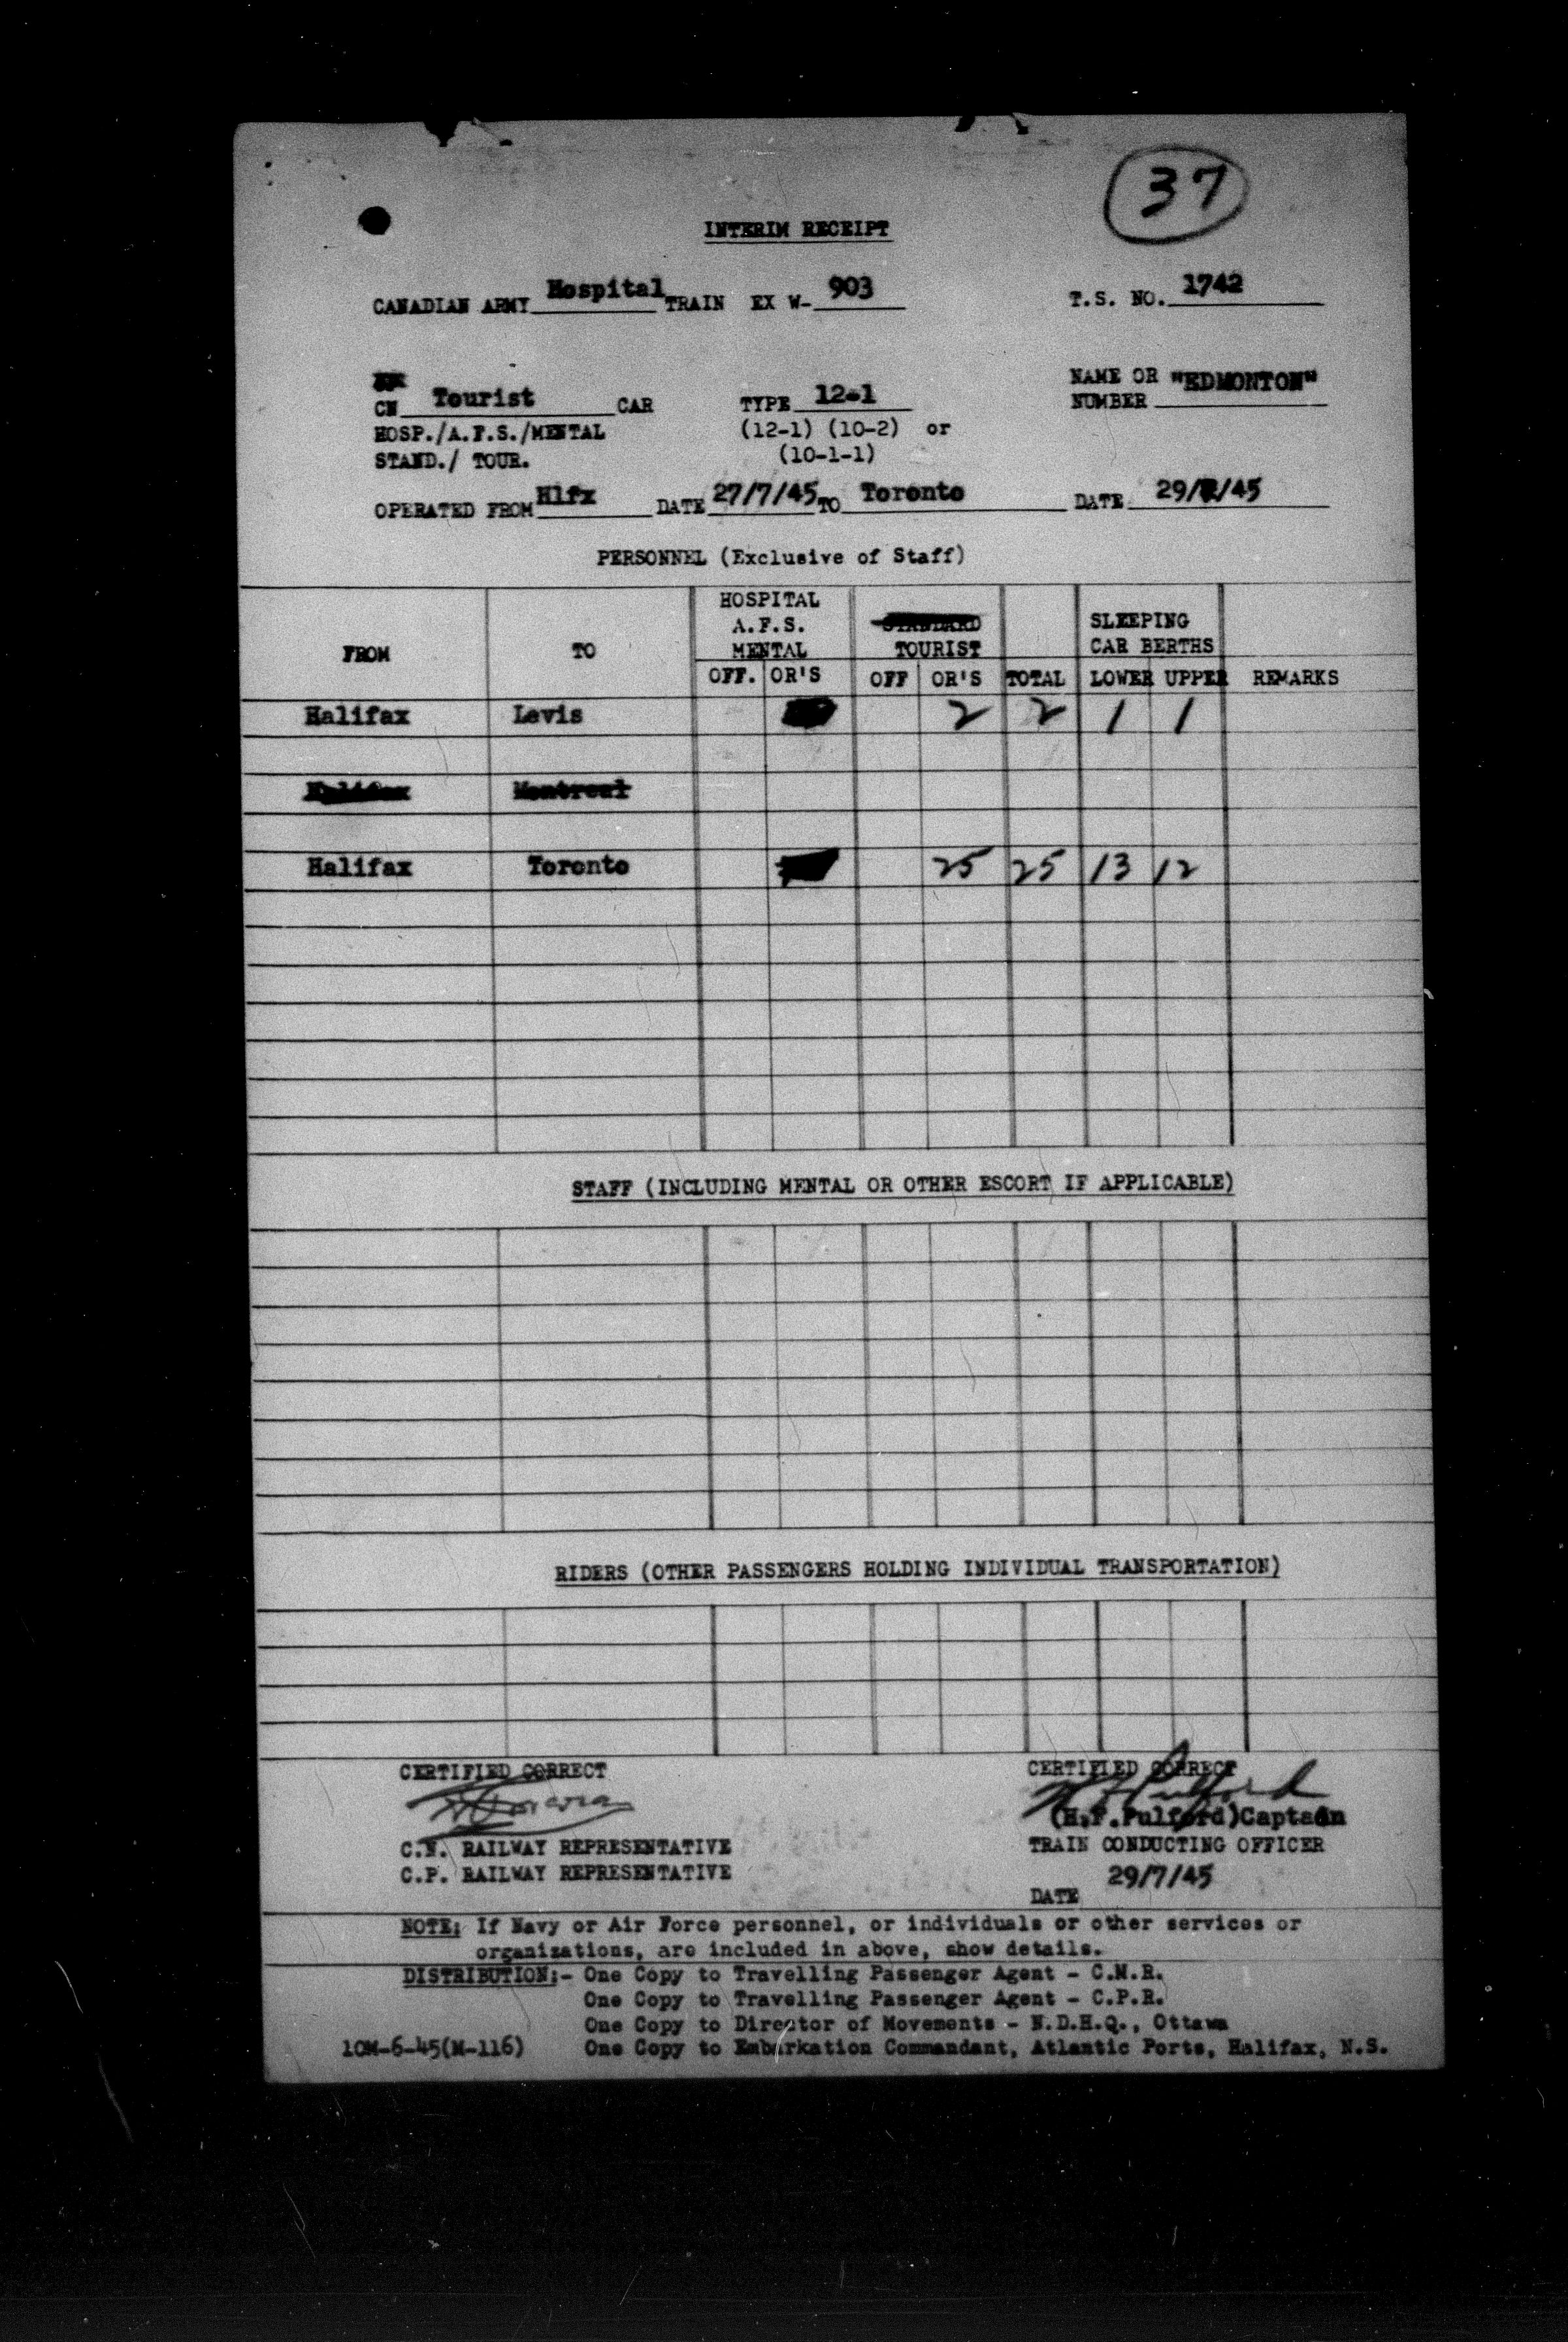 37
INTERIM RECEIPT
CANADIAN ARMY Hospital TRAIN EX W- 903 T.S. NO. 1742
CN Tourist CAR TYPE 12-1 NAME OR NUMBER "EDMONTON"
HOSP./A.F.S./MENTAL (12-1) (10-2) or
STAND./ TOUR. (10-1-1)
OPERATED FROM Hlfx DATE 27/7/45 TO Toronto DATE 29/7/45
PERSONNEL (Exclusive of Staff)
FROM TO HOSPITAL A.F.S. MENTAL STANDARD TOURIST SLEEPING CAR BERTHS
OFF. OR'S OFF OR'S TOTAL LOWER UPPER REMARKS
Halifax Levis 2 2 1 1
Halifax Montreal
Halifax Toronto 25 25 13 12
STAFF (INCLUDING MENTAL OR OTHER ESCORT IF APPLICABLE)
RIDERS (OTHER PASSENGERS HOLDING INDIVIDUAL TRANSPORTATION)
CERTIFIED CORRECT CERTIFIED CORRECT
H F Pulford
(H.F.Pulford)Captain
C.N. RAILWAY REPRESENTATIVE TRAIN CONDUCTING OFFICER
C.P. RAILWAY REPRESENTATIVE DATE 29/7/45
NOTE: If Navy or Air Force personnel, or individuals or other services or
organizations, are included in above, show details.
DISTRIBUTION:- One Copy to Travelling Passenger Agent - C.N.R.
One Copy to Travelling Passenger Agent - C.P.R.
One Copy to Director of Movements - N.D.H.Q., Ottawa
10M-6-45(M-116) One Copy to Embarkation Commandant, Atlantic Ports, Halifax, N.S.